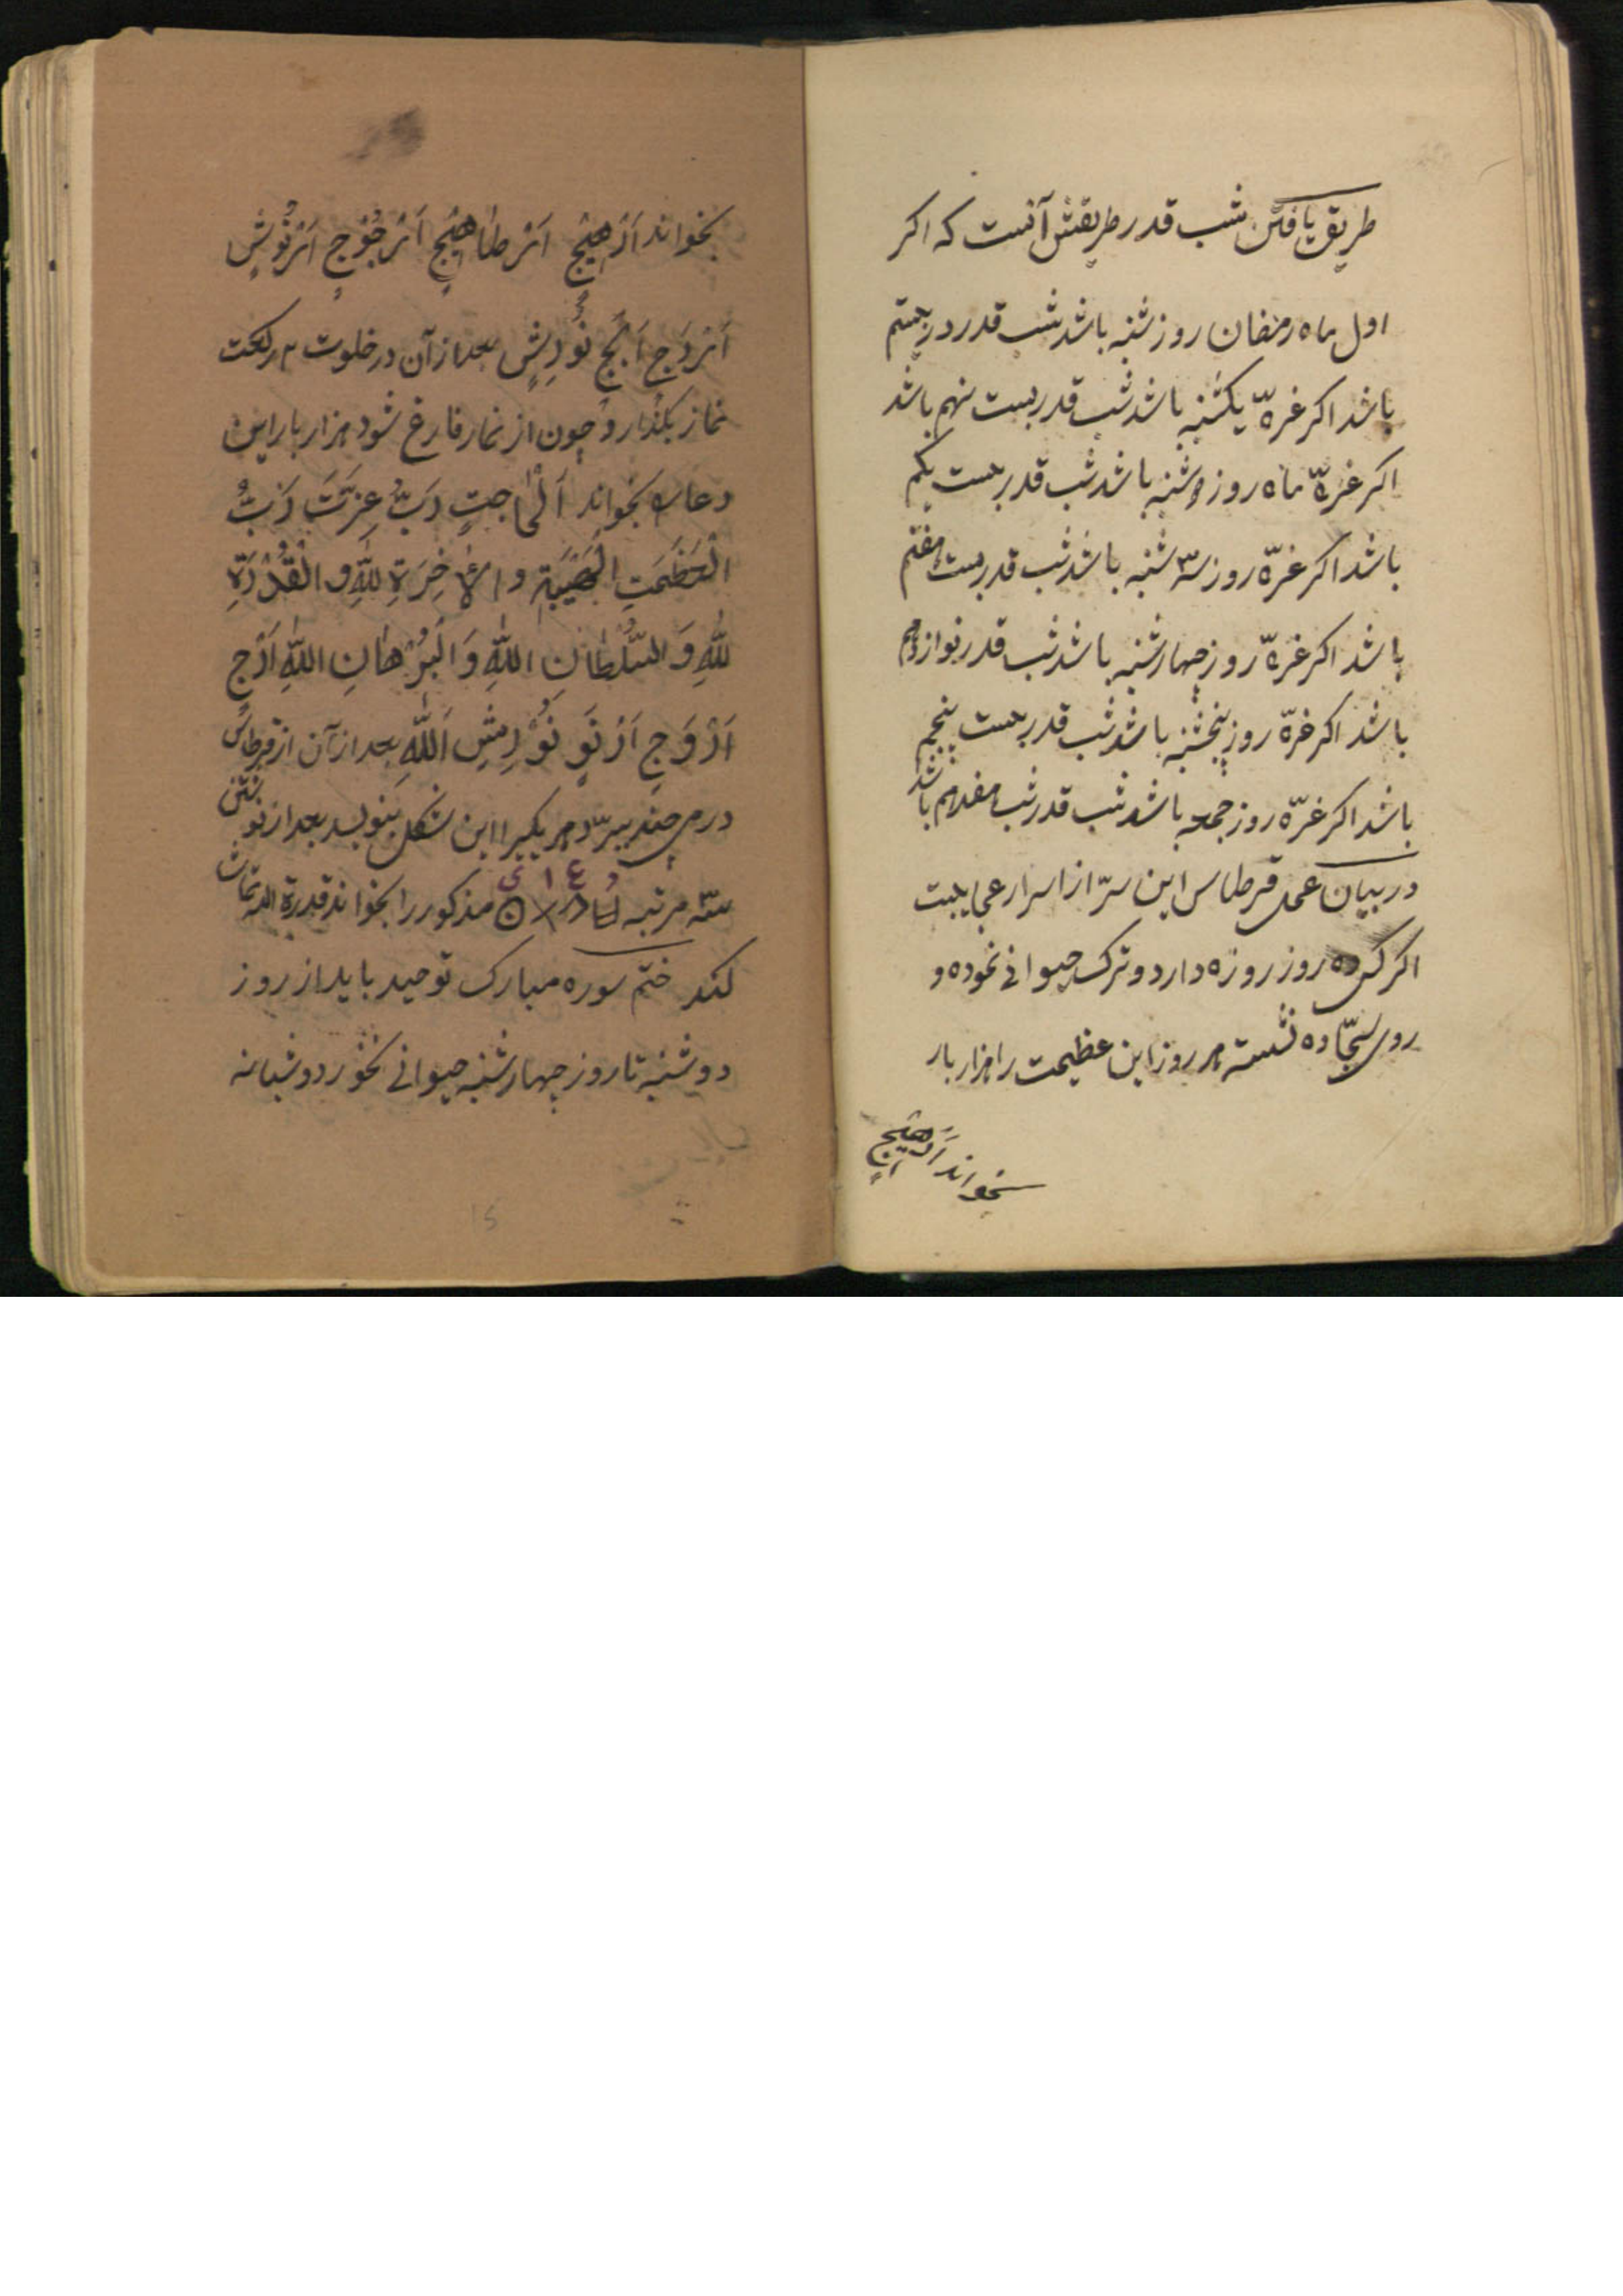 طریق یافتن شب قدر طریقش آنست که اکر
اول ماه رمضان روز شنبه باشد شب قدر در بیستم
باشد اکر غرّه یکشنبه باشد شب قدر بیست نهم باشد
اکر غرّه ماه روز دوشنبه باشد شب قدر بیست یکم
باشد اکر غرّه روز سه شنبه باشد شب قدر بیست هفتم
باشد اکر غرّه روز چهارشنبه باشد شب قدر نوازدهم
باشد اکر غرّه روز پنجشنبه باشد شب قدر بیست پنجم
باشد اکر غرّه روز جمعه باشد شب قدر شب هفدهم باشد
در بیان عمل قرطاس این سرّ از اسرار عجایبست
اکر کسی ده روز روزه دارد و ترک حیوانی نموده و
روی سجّاده نشسته هر روز این عظیمت را هزار بار
بخواند اَرْهیَجٍ
بخواند اَرْهیَجٍ اَرْطاهیَجٍ اَرْجُوْجٍ اَرْنُوشٍ
اَرْدَجٍ اَبَجٍ نُوْرِشٍ بعد از آن در خلوت ۲ رکعت
نماز بکذارد و چون از نماز فارغ شود هزار بار این
دعا را بخواند اَلْحاجتِ رَبُّ عِزَّتَ رَبُّ
الْعَظَمَتِ الْهَیْبَة و الاٰخِرَةِ لِلّٰهِ و الْقُدْرَةِ
لِلّٰهِ وَ السُّلْطانِ اللّٰهِ وَ الْبُرْهانِ اللّٰهِ اَرْجٍ
اَرْوَجٍ اَرْنَوٍ نُوْرِشِ اَللّٰهِ بعد از آن از قرطاس
درمی چند ببرّد و هر یکیرا این شکل بنویسد بعد از نوشتن
سه مرتبه مذکور را بخواند قدرة الله تماشا
کند ختم سوره مبارک توحید باید از روز
دوشنبه تا روز چهارشنبه حیوانی نخورد و شبانه